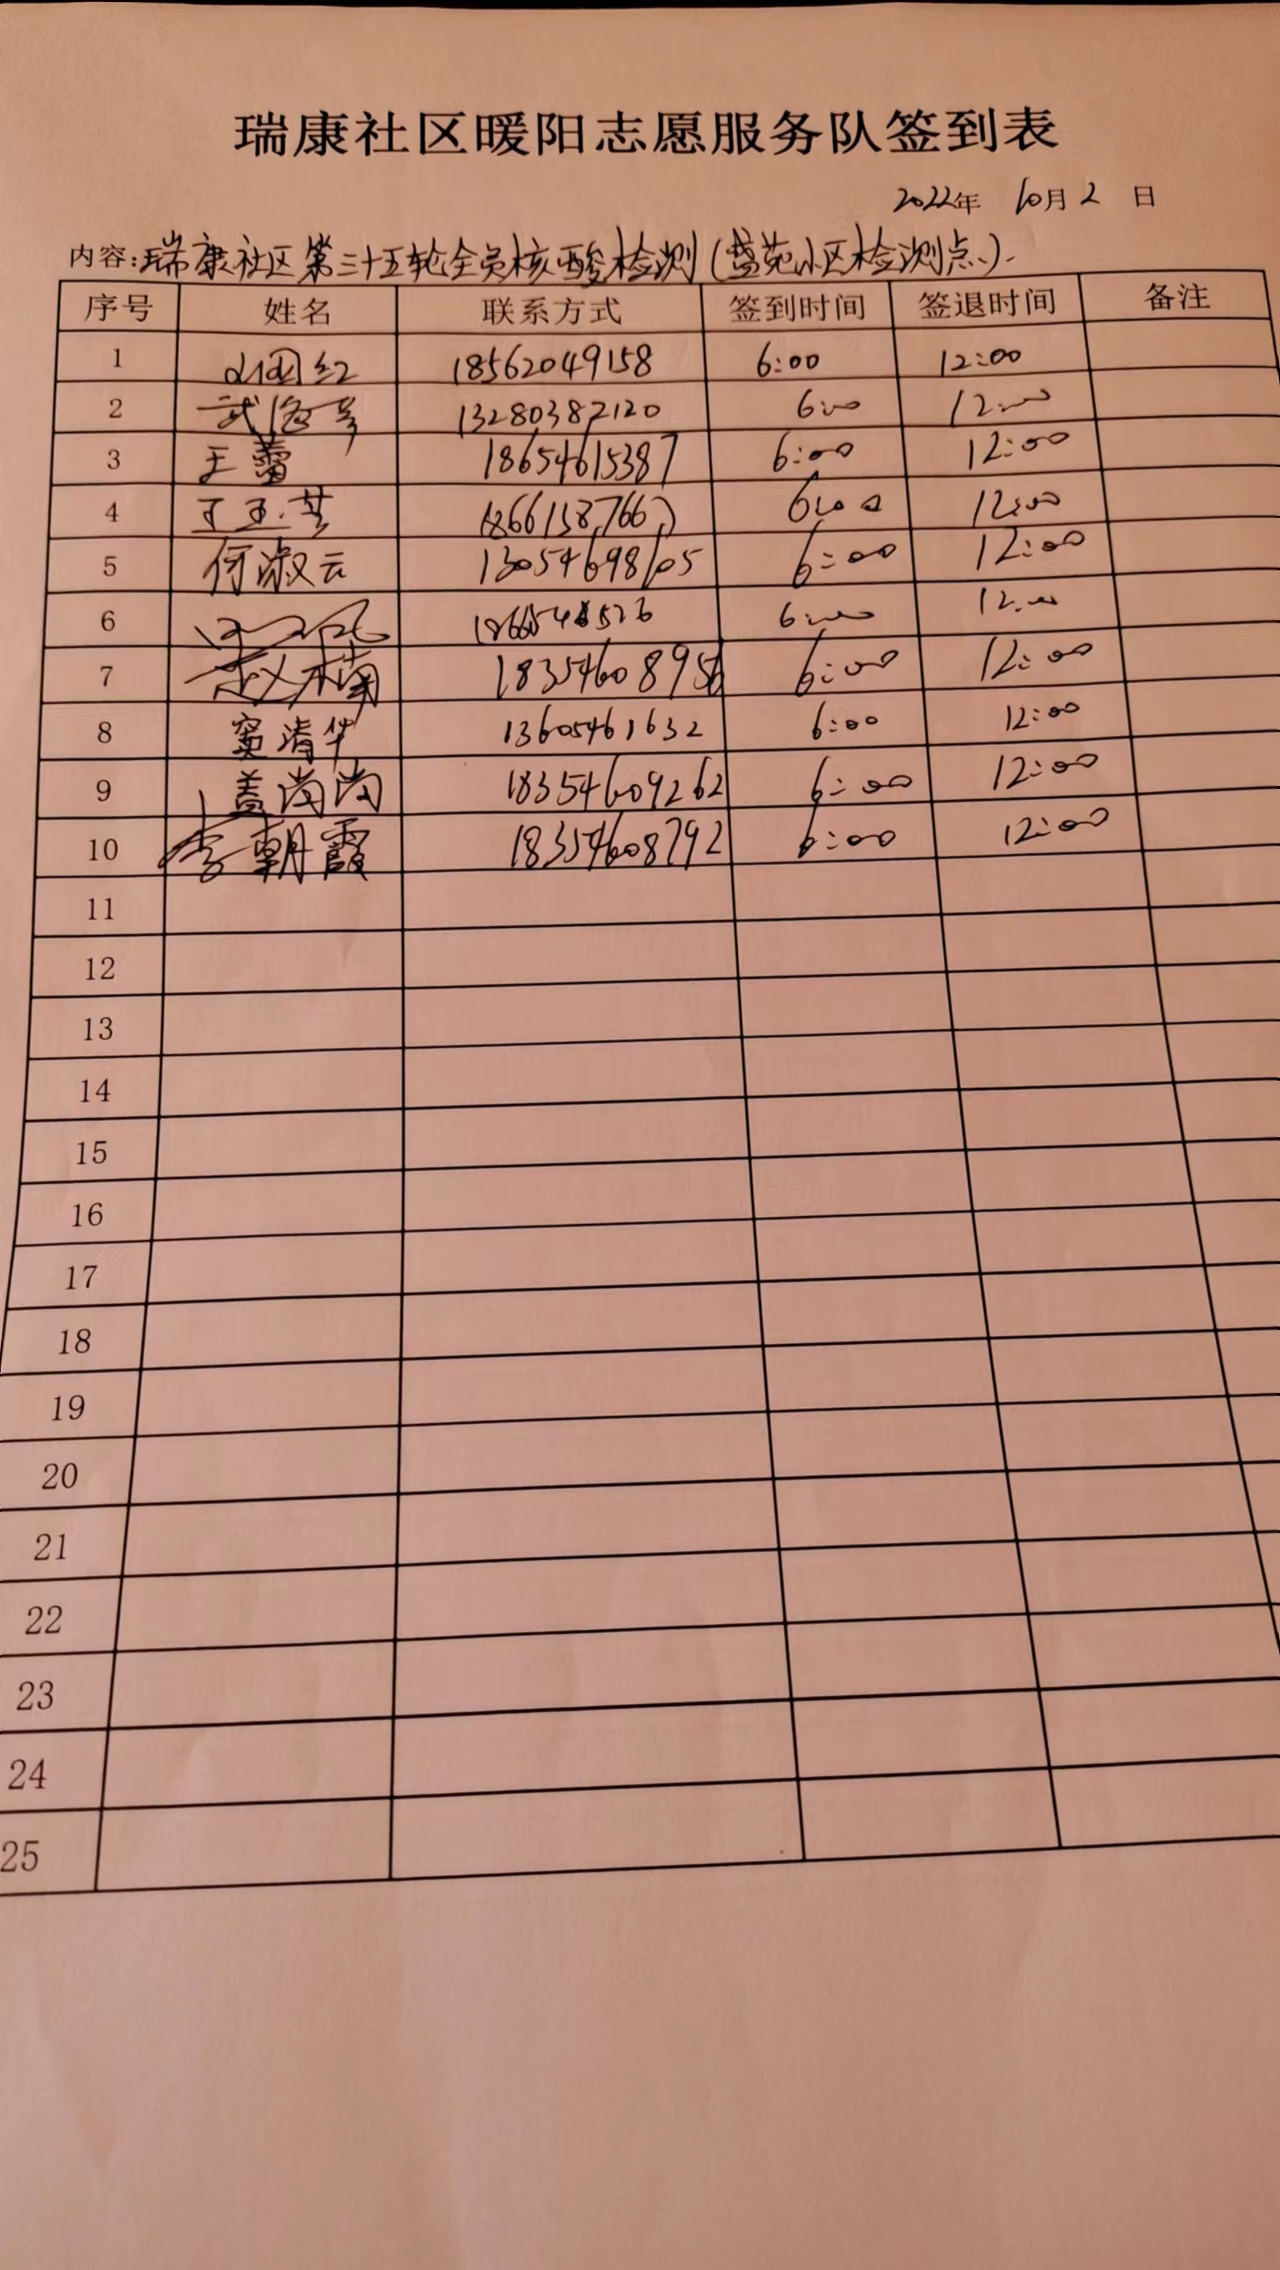 瑞康社区暖阳志愿服务队签到表
2022年 10月 2 日
内容:瑞康社区第三十五轮全员核酸检测(盛苑小区检测点).
序号 姓名 联系方式 签到时间 签退时间 备注
1 红 18562049158 6:00 12:00
2 武海 13280382120 6:00 12:00
3 王蕾 18654615387 6:00 12:00
4 王玉芝 6:00 12:00
5 何淑云 13054698105 6:00 12:00
6 6:00 12:00
7 赵楠 18354608956 6:00 12:00
8 窦清华 13605461632 6:00 12:00
9 盖尚尚 18354609262 6:00 12:00
10 李朝霞 18354608792 6:00 12:00
11
12
13
14
15
16
17
18
19
20
21
22
23
24
25